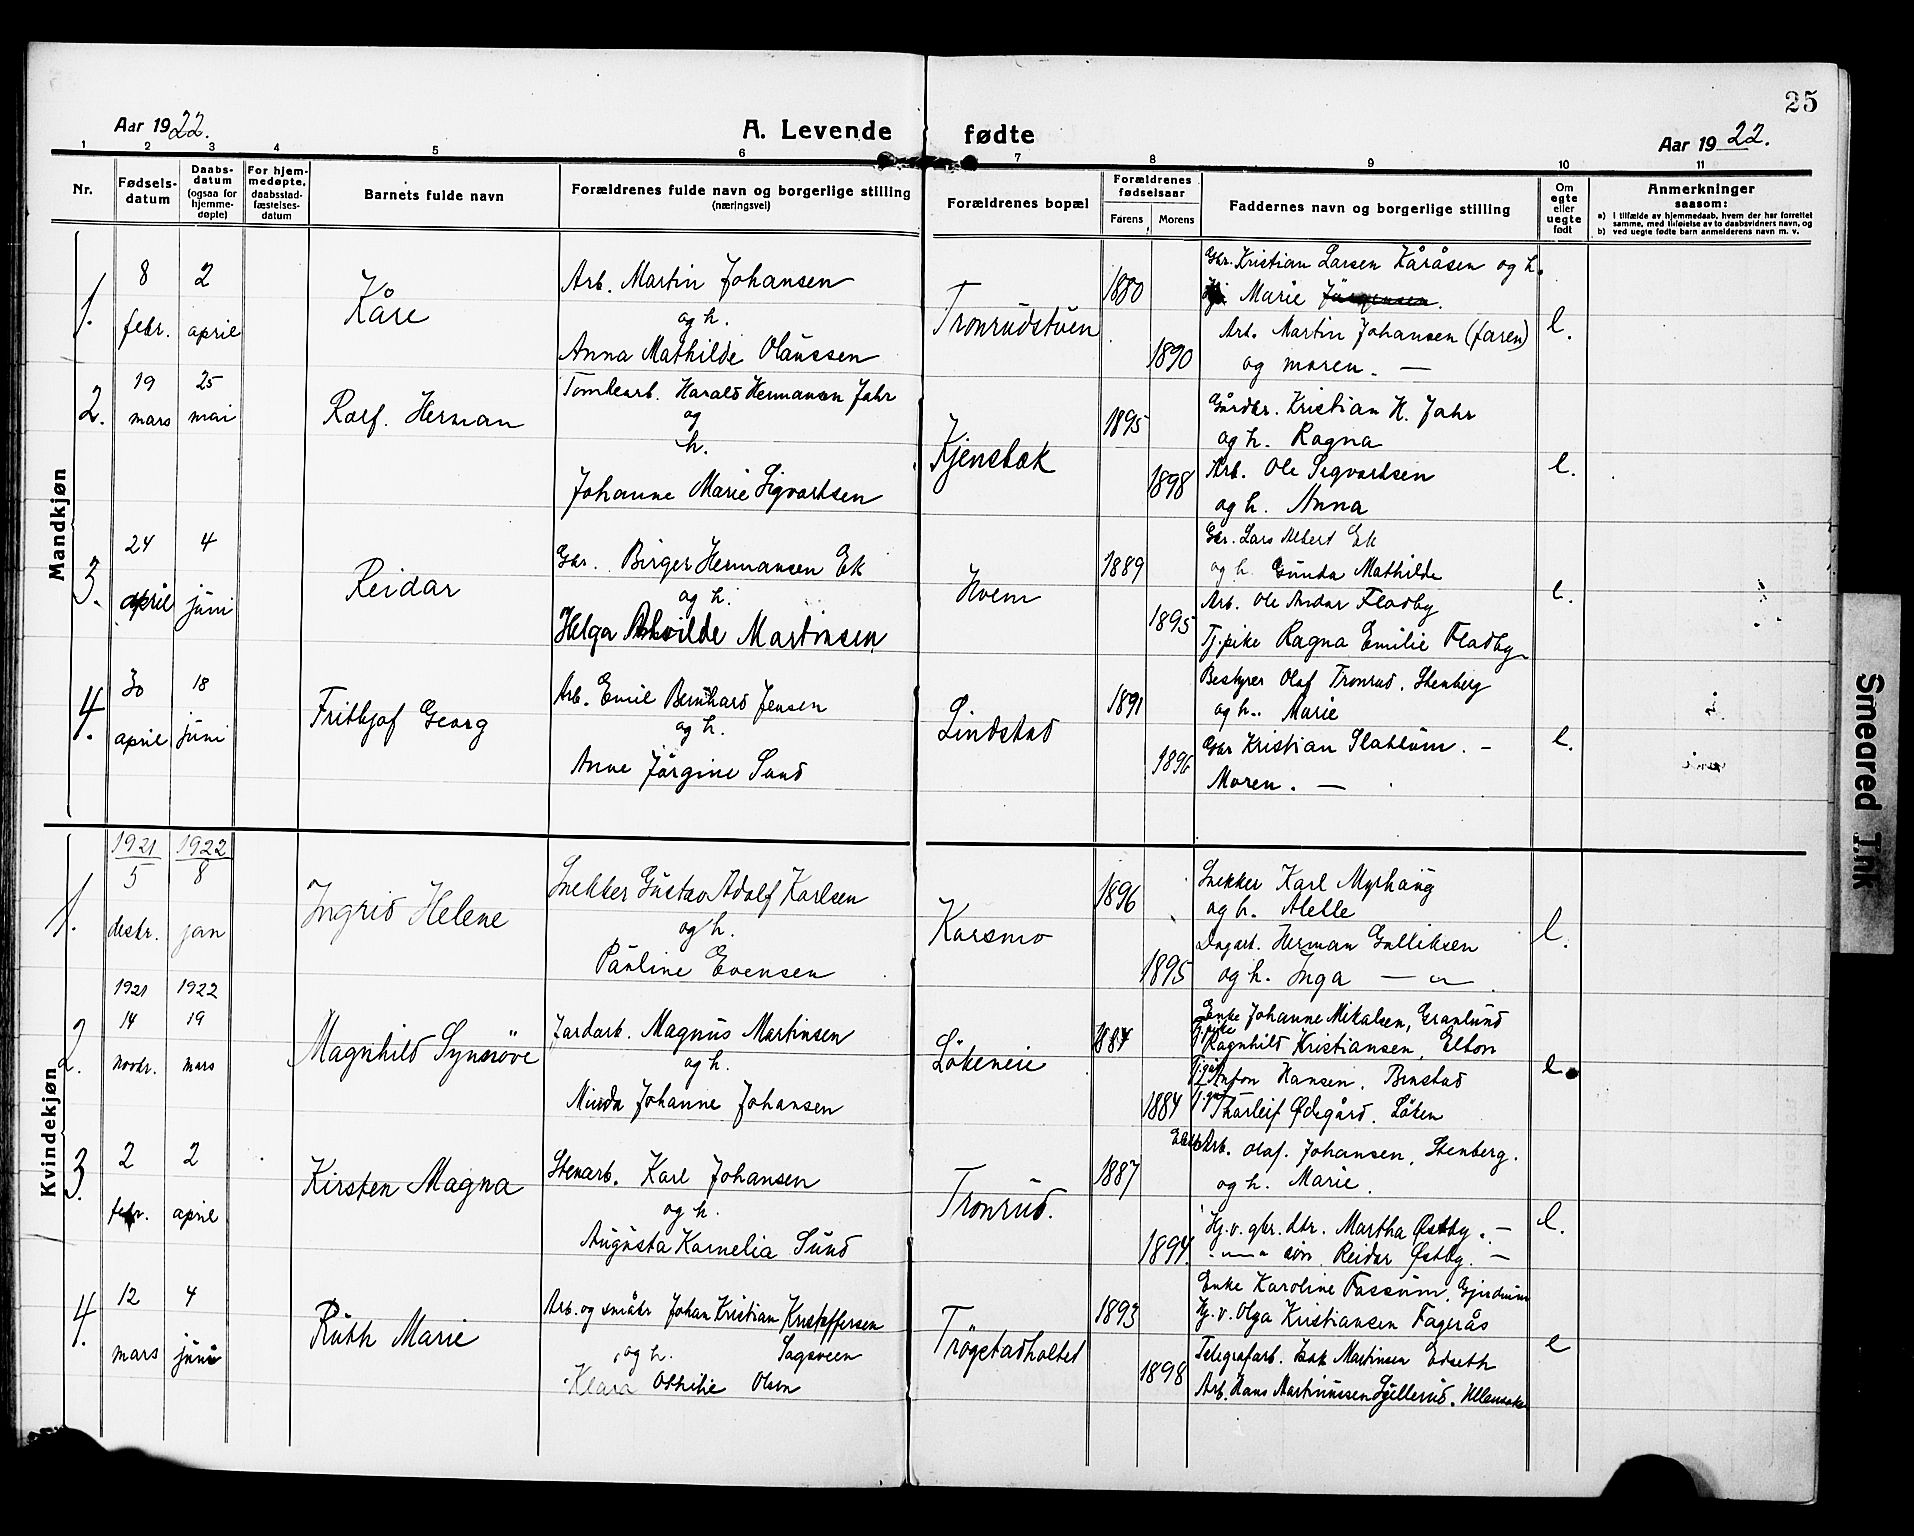 25
Aar 1922.
A. Levende fødte
Aar 1922.
1 2 3 4 5 6 7 8 9 10 11
Nr.
Fødselsdatum
Daabsdatum (ogsaa for hjemmedøpte)
For hjemmedøpte, daabsstadfæstelsesdatum
Barnets fulde navn
Forældrenes fulde navn og borgerlige stilling (næringsvei)
Forældrenes bopæl
Forældrenes fødselsaar
Farens Morens
Faddernes navn og borgerlige stilling
Om egte eller uegte født
Anmerkninger saasom:
a) I tilfælde av hjemmedaab, hvem der har forrettet samme, med tilføielse av to daabsvidners navn, og
b) ved uegte fødte barn anmelderens navn m. v.
Mandkjøn
1.
8 febr.
2 april
Kåre
Arb. Martin Johansen
og h.
Anna Mathilde Olaussen
Tronrudstuen
1880
1890
Gbr. Kristian Larsen Kåråsen og h.
Marie Jørgensen.
Arb. Martin Johansen (faren)
og moren. —
e.
2.
19 mars
25 mai
Rolf. Herman
Tomtearb. Harald Hermansen Jahr
og
h.
Johanne Marie Sigvartsen
Kjenstak
1895
1898
Gårdbr. Kristian H. Jahr
og h. Ragna
Arb. Ole Sigvartsen
og h. Anna
e.
3.
24 april
4 juni
Reidar
Gbr. Birger Hermansen Ek
og h.
Helga Martinsen
Hvem
1889
1895
Gbr. Lars Albert Ek
og h. Gunda Mathilde
Arb. Ole Andor Fladby
Tj.pike Ragna Emilie Fladby
e.
4.
30 april
18 juni
Fritbjof Georg
Arb. Emil Bernhard Jensen
og h.
Anne Jørgine Sand
Lindstad
1891
1896
Bestyrer Olaf Tronrud. Stenberg
og h. Marie
Gbr Kristian Slatlum. —
Moren. —
e.
Kvindekjøn
1.
1921 5 desbr.
1922 8 jan
Ingrid Helene
Snekker Gustav Adolf Karlsen
og h.
Pauline Evensen
Korsmo
1896
1895
Snekker Karl Myrhaug
og h. Alelle
Dagarb. Herman Gulliksen
og h. Inga — " —
e.
2.
1921 14 novbr.
1922 19 mars
Magnhild Synnöve
Jordarb. Magnus Martinsen
og h.
Minda Johanne Johansen
Løkeneie
1884
1884
Enke Johanne Mikalsen, Granlund
Tj.pike Ragnhild Kristiansen, Elton
Anton Hansen. Bustad
Thorleif Ødegård. Løken
e.
3.
2 febr.
2 april
Kirsten Magna
Stenarb. Karl Johansen
og h.
Augusta Kornelia Sund
Tronrud.
1887
1894.
Arb. Olaf. Johansen, Stenberg.
og h. Marie.
Hj.v. gbr. dtr. Martha Østby. —
søn. Reidar Østby. —
e.
4.
12 mars
4 juni
Ruth Marie
Arb. og småbr Johan Kristian Kristoffersen
Sagsveen
og h.
Klara Othilie Olsen
Trøgstadholtet
1893
1898
Enke Karoline Fossum, Gjerdrum
Hj. v. Olga Kristiansen Fagerås
Telegrafarb. Isak Martinsen Edseth
Arb. Hans Martinussen Gullerud. Ullensaker
e
Smeared Ink